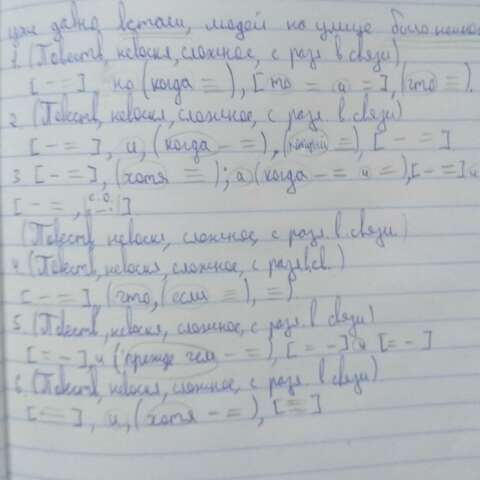 уже давно встали, людей на улице было немно
1. (Повеств, невоскл, сложное, с разл в. связи)
[ – = ], но (когда = ), [то = и = ], (что = ).
2. (Повеств, невоскл, сложное, с разл. в. связи)
[ – = ], и, (когда – = ), (который = ), [ – = ]
3. [ – = ], (хотя = ); а (когда – = и = ), [ – = ] и
[ – = , |с.о.| ]
(Повест, невоскл, сложное, с разл. в. связи.)
4. (Повеств, невоскл, сложное, с разл. в. св.)
[ – = ], (что, (если = ), = )
5. (Повеств, невоскл, сложное, с разл. в связи)
[ = – ], и (прежде чем – = ), [ = – ] и [ = – ]
6. (Повеств, невоскл, сложное, с разл. в связи)
[ = ], и, (хотя – = ), [ = ]